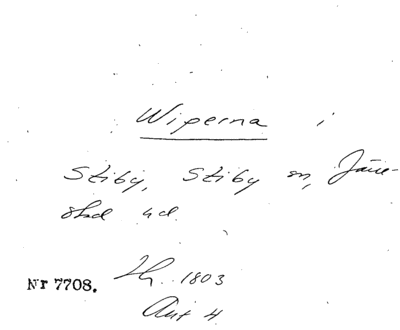 Wiperna i
Stiby, Stiby sn, Järre-
stad hd.
Nr 7708. 1803
Ant 4